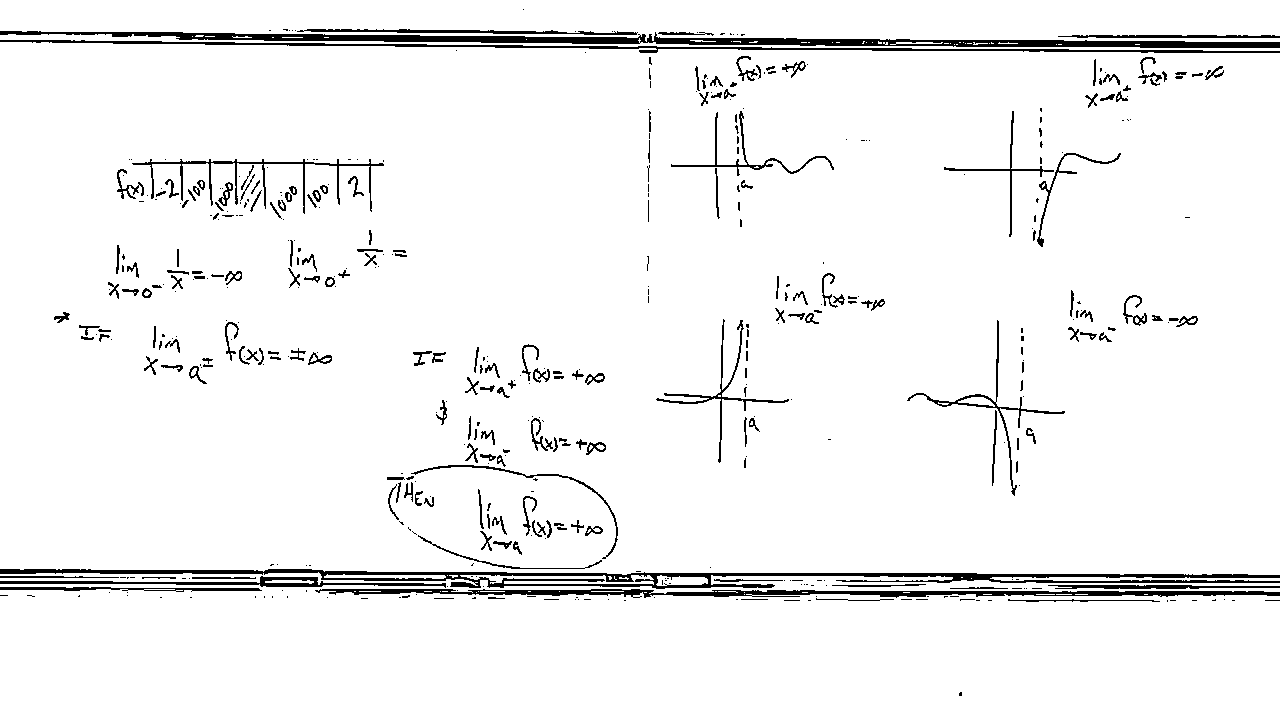 f(x) -2 100 1000 1000 100 2
lim x→0⁻ 1/x = -∞
lim x→0⁺ 1/x =
* IF lim x→a± f(x) = ±∞
IF lim x→a⁺ f(x) = +∞
& lim x→a⁻ f(x) = +∞
THEN lim x→a f(x) = +∞
lim x→a⁺ f(x) = +∞
a
lim x→a⁺ f(x) = -∞
a
lim x→a⁻ f(x) = +∞
a
lim x→a⁻ f(x) = -∞
a